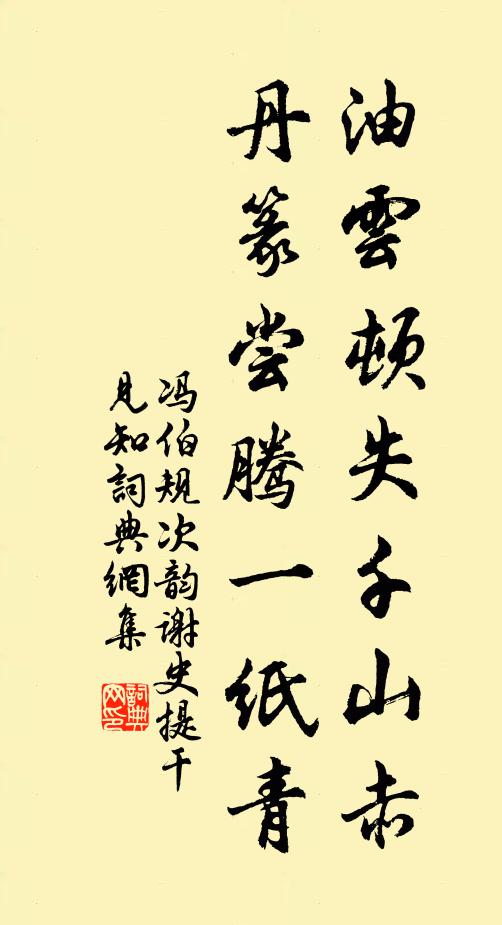 油雲頓失千山赤
丹篆尝腾一纸青
冯伯规次韵谢史提干
見知詞典網集
詞典
网印